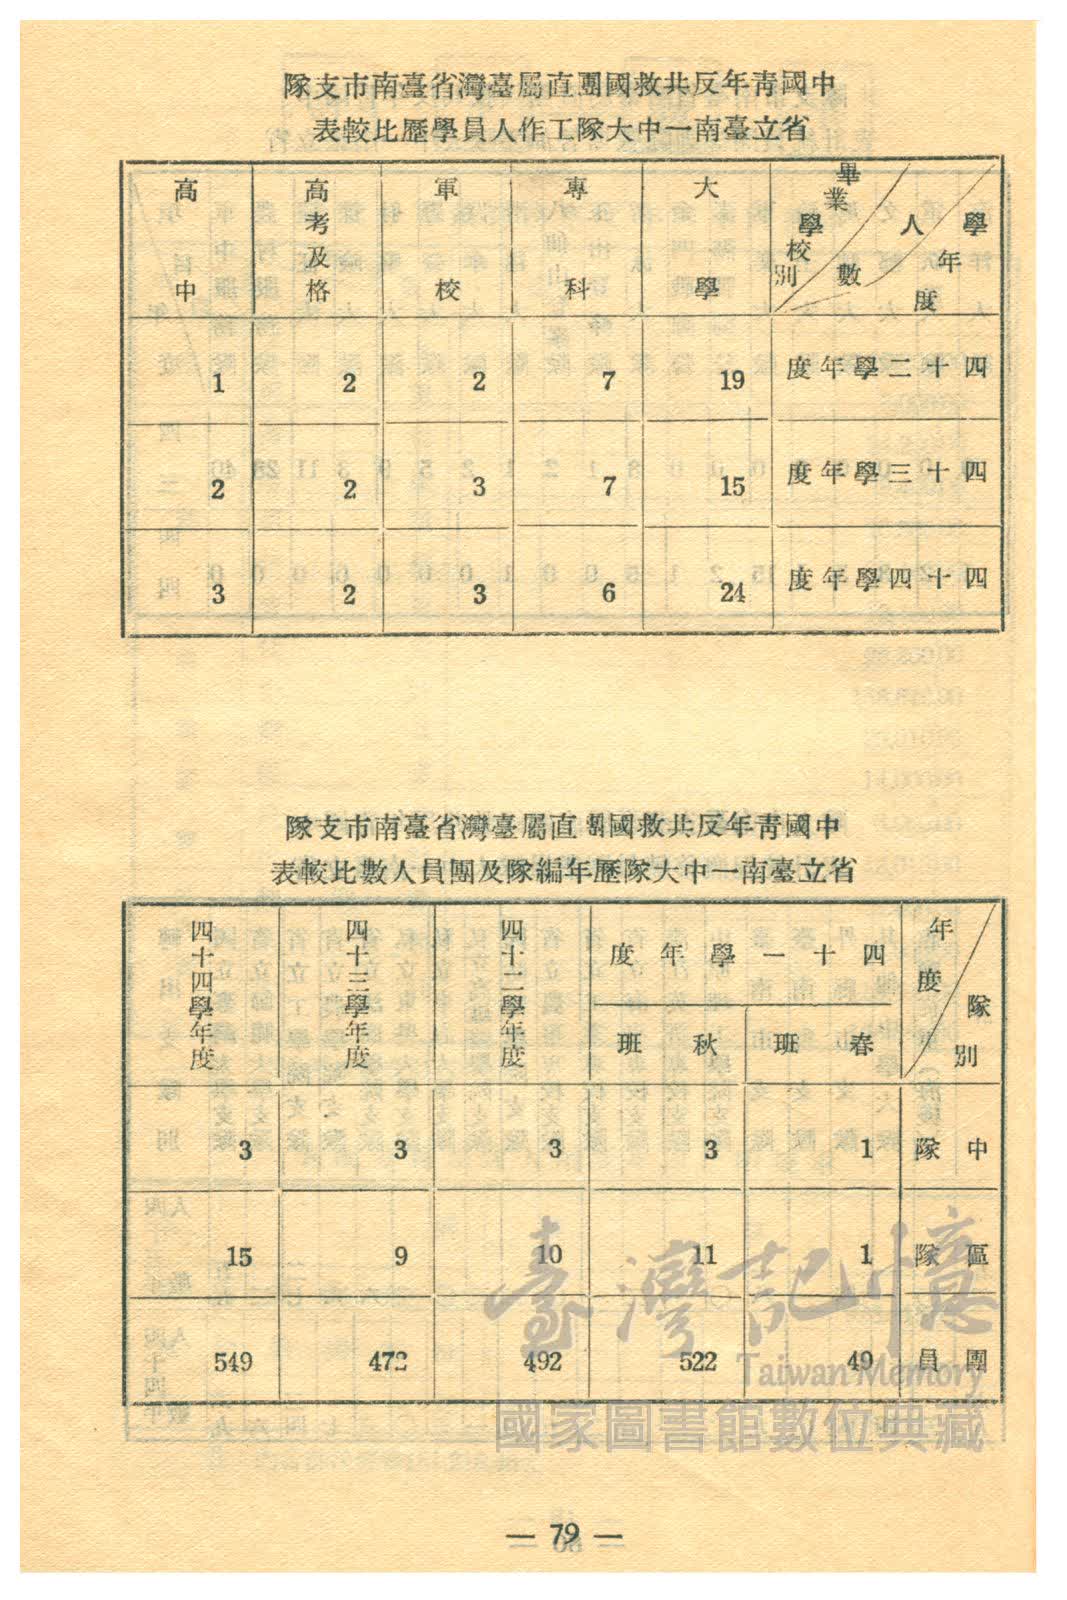 中國青年反共救國團直屬臺灣省臺南市支隊
省立臺南一中大隊工作人員學歷比較表
學年度 人數 畢業學校別 大學 專科 軍校 高考及格 高中
四十二學年度 19 7 2 2 1
四十三學年度 15 7 3 2 2
四十四學年度 24 6 3 2 3
中國青年反共救國團直屬臺灣省臺南市支隊
省立臺南一中大隊歷年編隊及團員人數比較表
隊別 年度 四十一學年度 四十二學年度 四十三學年度 四十四學年度
春班 秋班
中隊 1 3 3 3 3
區隊 1 11 10 9 15
團員 49 522 492 472 549
臺灣記憶
Taiwan Memory
國家圖書館數位典藏
— 79 —